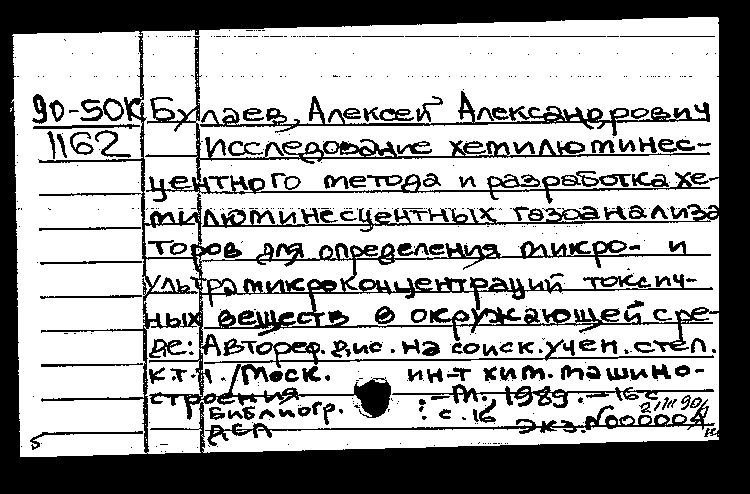 90-50К Булаев, Алексей Александрович
1162 Исследование хемилюминес-
центного метода и разработка хе-
милюминесцентных газоанализа
торов для определения микро- и
ультрамикроконцентраций токсич-
ных веществ в окружающей сре-
де: Автореф. дис. на соиск. учен. степ.
к.т.н. /Моск. ин-т хим. машино-
строения. - М., 1989. - 16 с
Библиогр. : с. 16
ДСП Экз. N000004
5